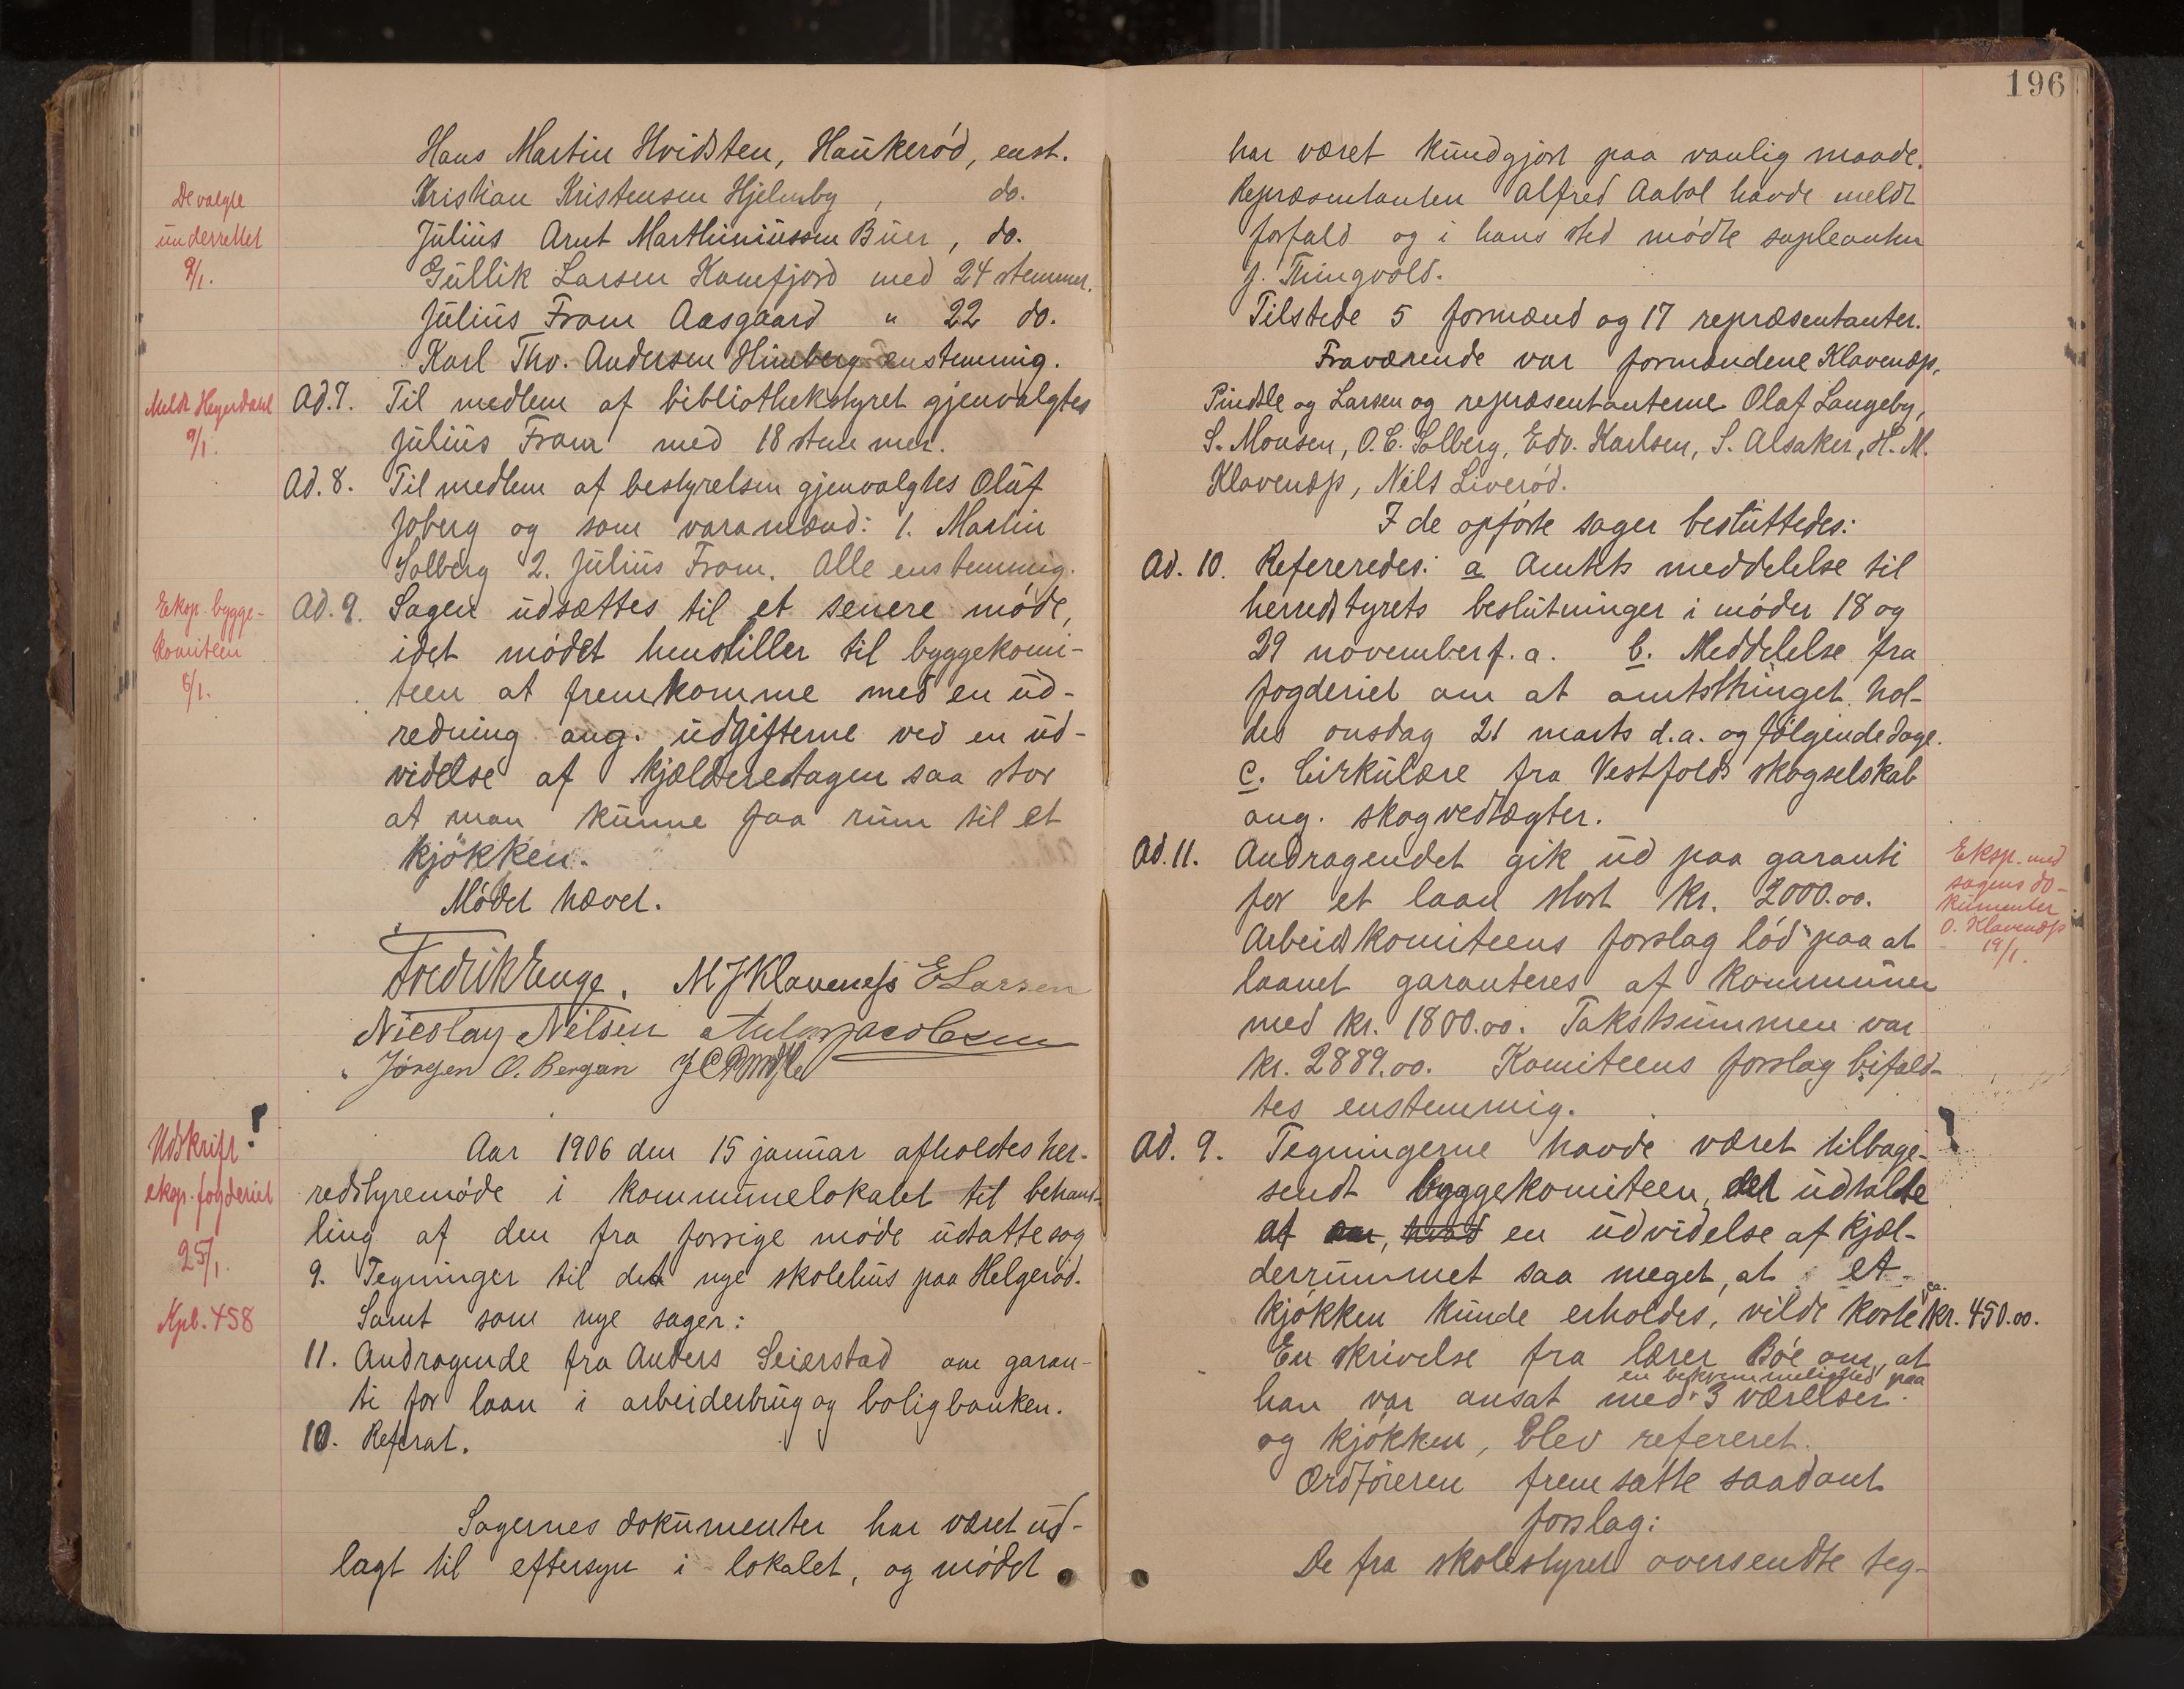 Hans Martin Hvidsten, Haukerød, enst.
De valgte
underrettet
9/1.
Kristian Kristensen Hjelmby, do.
Julius Arnt Marthiniussen Buer, do.
Gullik Larsen Kamfjord med 24 stemmer.
Julius Fram Aasgaard " 22 do.
Karl Thv. Andersen Himberg enstemmig.
Meldt Heyerdahl
9/1.
Ad. 7. Til medlem af bibliothekstyret gjenvalgtes
Julius Fram med 18 stemmer.
Ad. 8. Til medlem af bestyrelsen gjenvalgtes Oluf
Joberg og som varamænd: 1. Martin
Solberg 2. Julius Fram. Alle enstemmig.
Eksp. bygge-
komiteen
8/1.
Ad. 9. Sagen udsættes til et senere møde,
idet mødet henstiller til byggekomi-
teen at fremkomme med en ud-
redning ang. udgifterne ved en ud-
videlse af kjælderetagen saa stor
at man kunne faa rum til et
kjøkken.
Mødet hævet.
Fredrik Enge. M J Klaveness E Larsen
Nicolay Nilsen Anton Jacobsen
Jørgen O. Bergan J C Pindsle
Udskrift
eksp. fogderiet
25/1.
Kpb. 458
Aar 1906 den 15 januar afholdtes her-
redstyremøde i kommunelokalet til behand-
ling af den fra forrige møde udsatte sag
9. Tegninger til det nye skolehus paa Helgerød.
Samt som nye sager:
11. Andragende fra Anders Seierstad om garan-
ti for laan i arbeiderbrug og boligbanken.
10. Referat.
Sagernes dokumenter har været ud-
lagt til eftersyn i lokalet, og mødet
196
har været kundgjort paa vanlig maade.
Repræsentanten Alfred Aabol havde meldt
forfald og i hans sted mødte supleanten
J. Thingvold.
Tilstede 5 formænd og 17 repræsentanter.
Fraværende var formændene Klavenæss,
Pindsle og Larsen og repræsentanterne Olaf Langeby,
S. Monsen, O. C. Solberg, Edv. Karlsen, S. Alsaker, H. M.
Klavenæss, Nils Liverød.
I de opførte sager besluttedes:
Ad. 10. Refereredes: a Amtets meddelelse til
herredstyrets beslutninger i møder 18 og
29 november f. a. b. Meddelelse fra
fogderiet om at amtsthinget hol-
des onsdag 21 marts d. a. og følgende dage.
c. Cirkulære fra Vestfolds skogselskab
ang. skogvedtægter.
Ad. 11. Andragendet gik ud paa garanti
for et laan stort kr. 2000.00.
Arbeidskomiteens forslag lød paa at
laanet garanteres af kommunen
med kr. 1800.00. Takstsummen var
kr. 2889.00. Komiteens forslag bifald-
tes enstemmig.
Eksp. med
sagens do-
kumenter
O. Klavenæss
19/1.
Ad. 9. Tegningerne havde været tilbage-
sendt byggekomiteen, der udtalte
at en udvidelse af kjæl-
derrummet saa meget, at et
kjøkken kunde erholdes, vilde koste ca. kr. 450.00.
En skrivelse fra lærer Bøe om, at
han var ansat med en bekvemmelighed paa 3 værelser
og kjøkken, blev refereret.
Ordføreren fremsatte saadant
forslag:
De fra skolestyret oversendte teg-